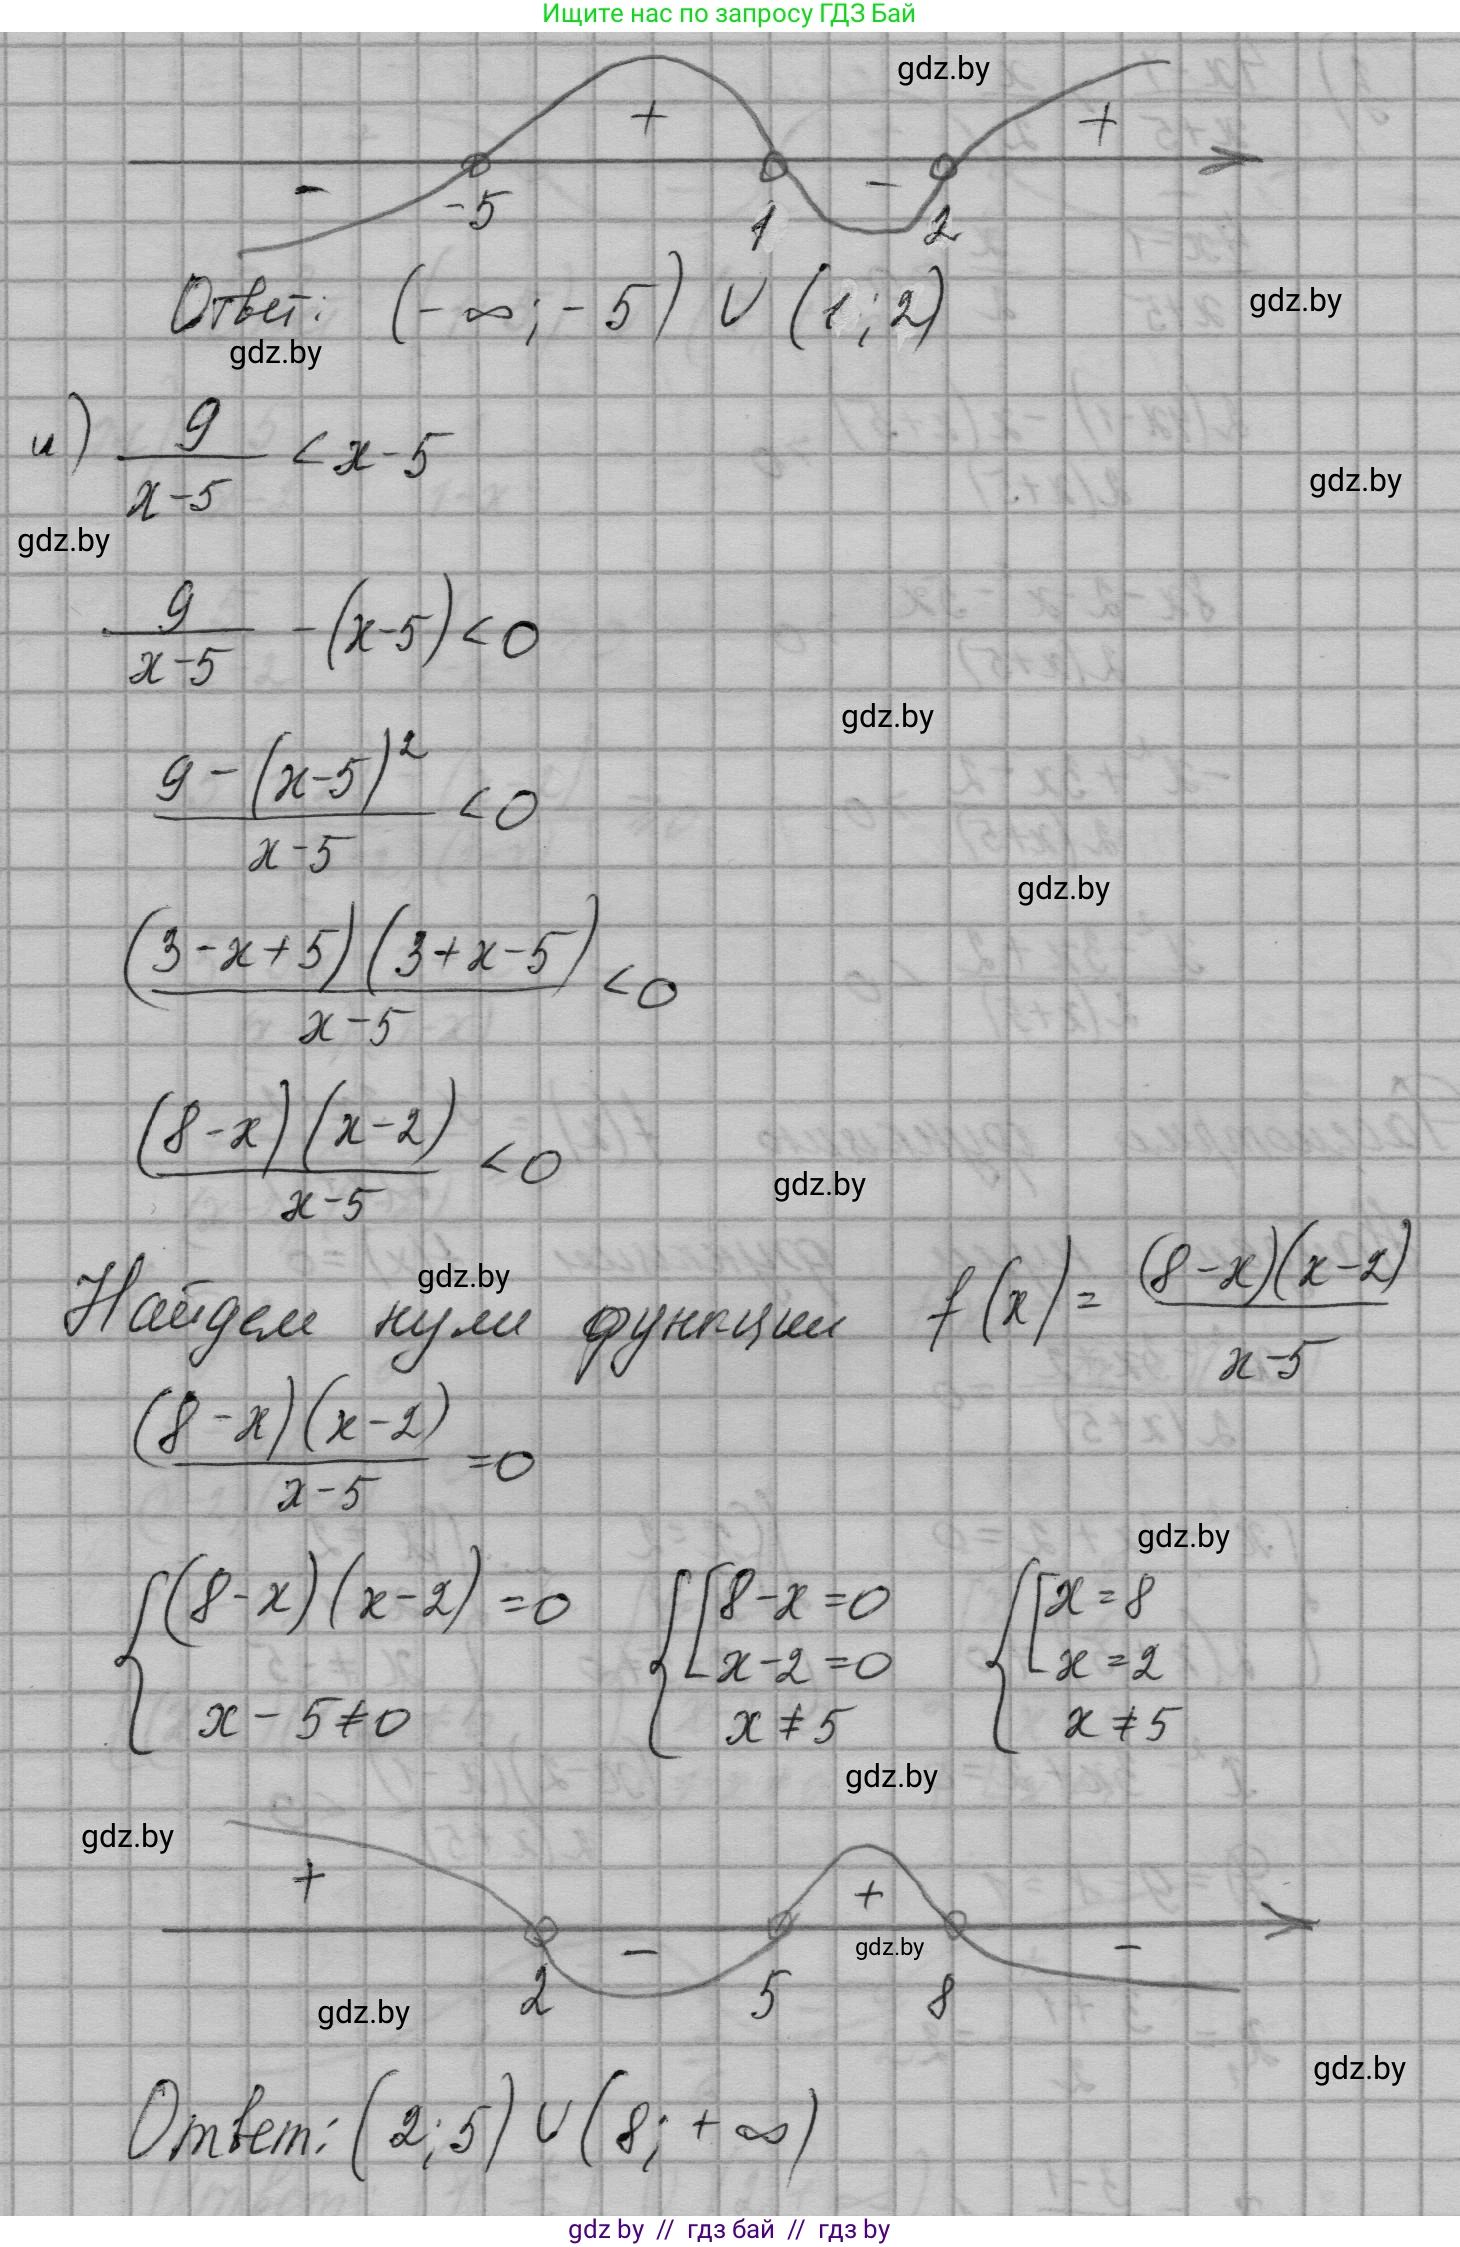 Ищите нас по запросу ГДЗ Бай
gdz.by
- + - +
-5 1 2
Ответ: (-∞; -5) ∪ (1; 2)
gdz.by
gdz.by
и) 9/(x-5) < x-5
gdz.by
gdz.by
9/(x-5) - (x-5) < 0
gdz.by
(9-(x-5)²)/(x-5) < 0
gdz.by
((3-x+5)(3+x-5))/(x-5) < 0
((8-x)(x-2))/(x-5) < 0
gdz.by
gdz.by
Найдем нули функции f(x) = ((8-x)(x-2))/(x-5)
((8-x)(x-2))/(x-5) = 0
gdz.by
{ (8-x)(x-2) = 0 { [ 8-x=0 { [ x=8
x-2=0 x=2
x-5≠0 x≠5 x≠5
gdz.by
gdz.by
+ - + -
gdz.by
2 5 8
gdz.by
gdz.by
Ответ: (2; 5) ∪ (8; +∞)
gdz by // гдз бай // гдз by